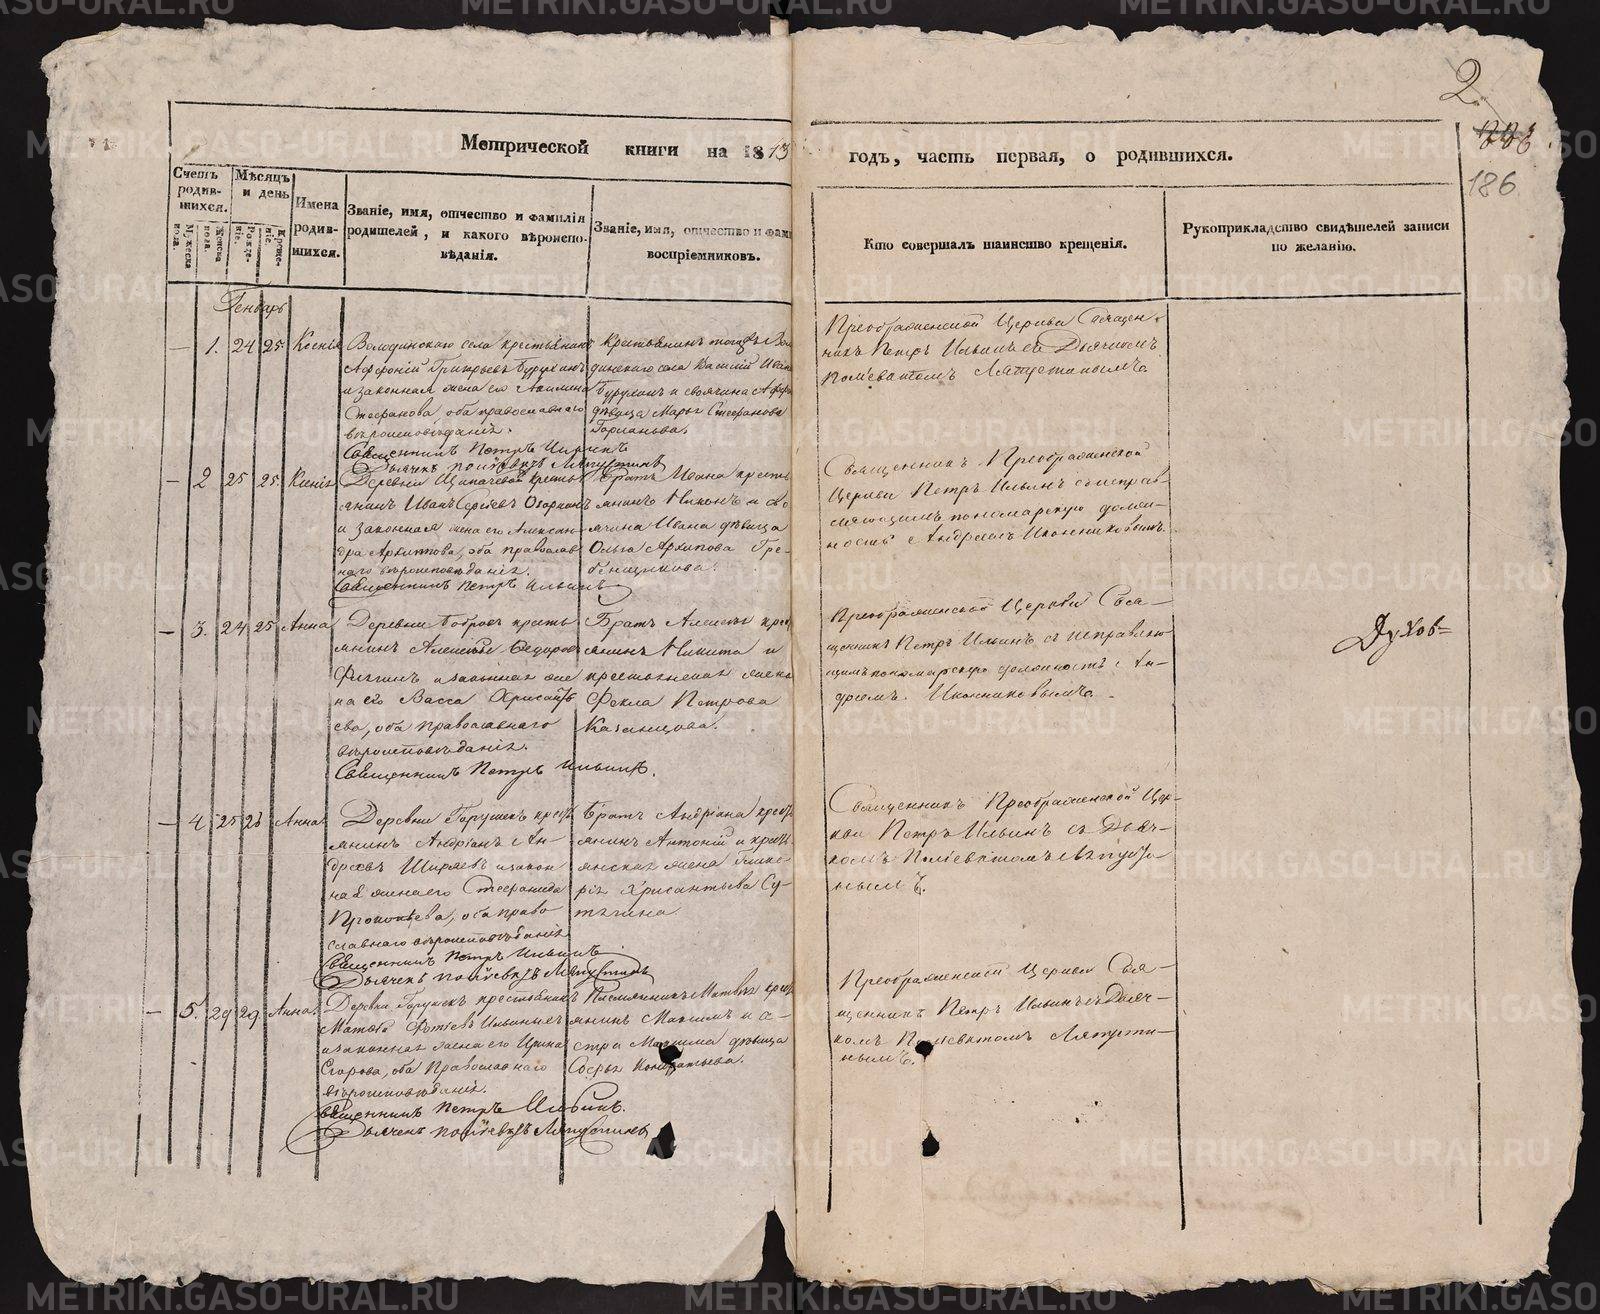 METRIKI.GASO-URAL.RU
2
186
Метрической книги на 18
годъ, часть первая, о родившихся.
Счетъ родив-шихся.
Мужеска пола.
Женска пола.
Мѣсяцъ и день
Рожде-ніе.
Креще-ніе.
Имена родив-шихся.
Званіе, имя, отчество и фамилія
родителей, и какого вѣроиспо-
вѣданія.
Званіе, имя, отчество и фами
воспріемниковъ.
Кто совершалъ таинство крещенія.
Рукоприкладство свидѣтелей записи
по желанію.
Генварь
1. 24 25 Ксенія
села крестьянинъ
Григорьевъ
и законная жена его Акилина
Стефанова, оба православнаго
вѣроисповѣданія.
Священникъ Петръ Ильинъ
Дьячекъ Поліевктъ Ляпустинъ
Крестьянинъ
динскаго села Василій Иван
и своячина
дѣвица Марья Стефанова
Преображенской Церкви Священ-
никъ Петръ Ильинъ съ Дьячкомъ
Поліевктомъ Ляпустинымъ
2 25 25. Ксенія
Деревни крестья
янинъ Иванъ Сергѣевъ
и законная жена его Алексан-
дра Архиппова, оба православ
наго вѣроисповѣданія.
Священникъ Петръ Ильинъ
Братъ Ивана кресть
янинъ Никонъ и сво
ячина Ивана дѣвица
Ольга Архипова Гре-
бенщикова.
Священникъ Преображенской
Церкви Петръ Ильинъ съ исправ-
ляющимъ пономарскую долж-
ность Андреемъ Иконниковымъ
3. 24 25 Анна
Деревни кресть
янинъ Алексѣй Ѳедоровъ
и законная же
на его Васса
ева, оба православнаго
вѣроисповѣданія.
Священникъ Петръ Ильинъ.
Братъ Алексѣя крес
янинъ Никита и
крестьянская жена
Фекла Петрова
Казанцова.
Преображенской Церкви Свя-
щенникъ Петръ Ильинъ съ исправляю-
щимъ пономарскую должность Ан-
дреемъ Иконниковымъ
Духов=
4 25 26 Анна
Деревни Горушекъ крест
янинъ Андріанъ Ан-
дреевъ Ширяевъ и закон
ная жена его Стефанида
Прокопьева, оба право
славнаго вѣроисповѣданія
Священникъ Петръ Ильинъ
Дьячекъ Поліевктъ Ляпустинъ
Братъ Андріана крест
янинъ Антоній и кресть
янская жена Глике-
рія Хрисантьева Су-
тягина
Священникъ Преображенской Цер-
кви Петръ Ильинъ съ Дьяч-
комъ Поліевктомъ Ляпусти-
нымъ.
5. 29 29 Анна
Деревни Горушекъ крестьянинъ
Матвѣй Фотіевъ
и законная жена его Ирина
Егорова, оба Православнаго
вѣроисповѣданія.
Священникъ Петръ Ильинъ.
Дьячекъ Поліевктъ Ляпустинъ
Племянникъ Матвѣя крест
янинъ Максимъ и се-
стра Максима дѣвица
Кондратьева.
Преображенской Церкви Свя-
щенникъ Петръ Ильинъ съ Дьяч-
комъ Поліевктомъ Ляпусти-
нымъ.